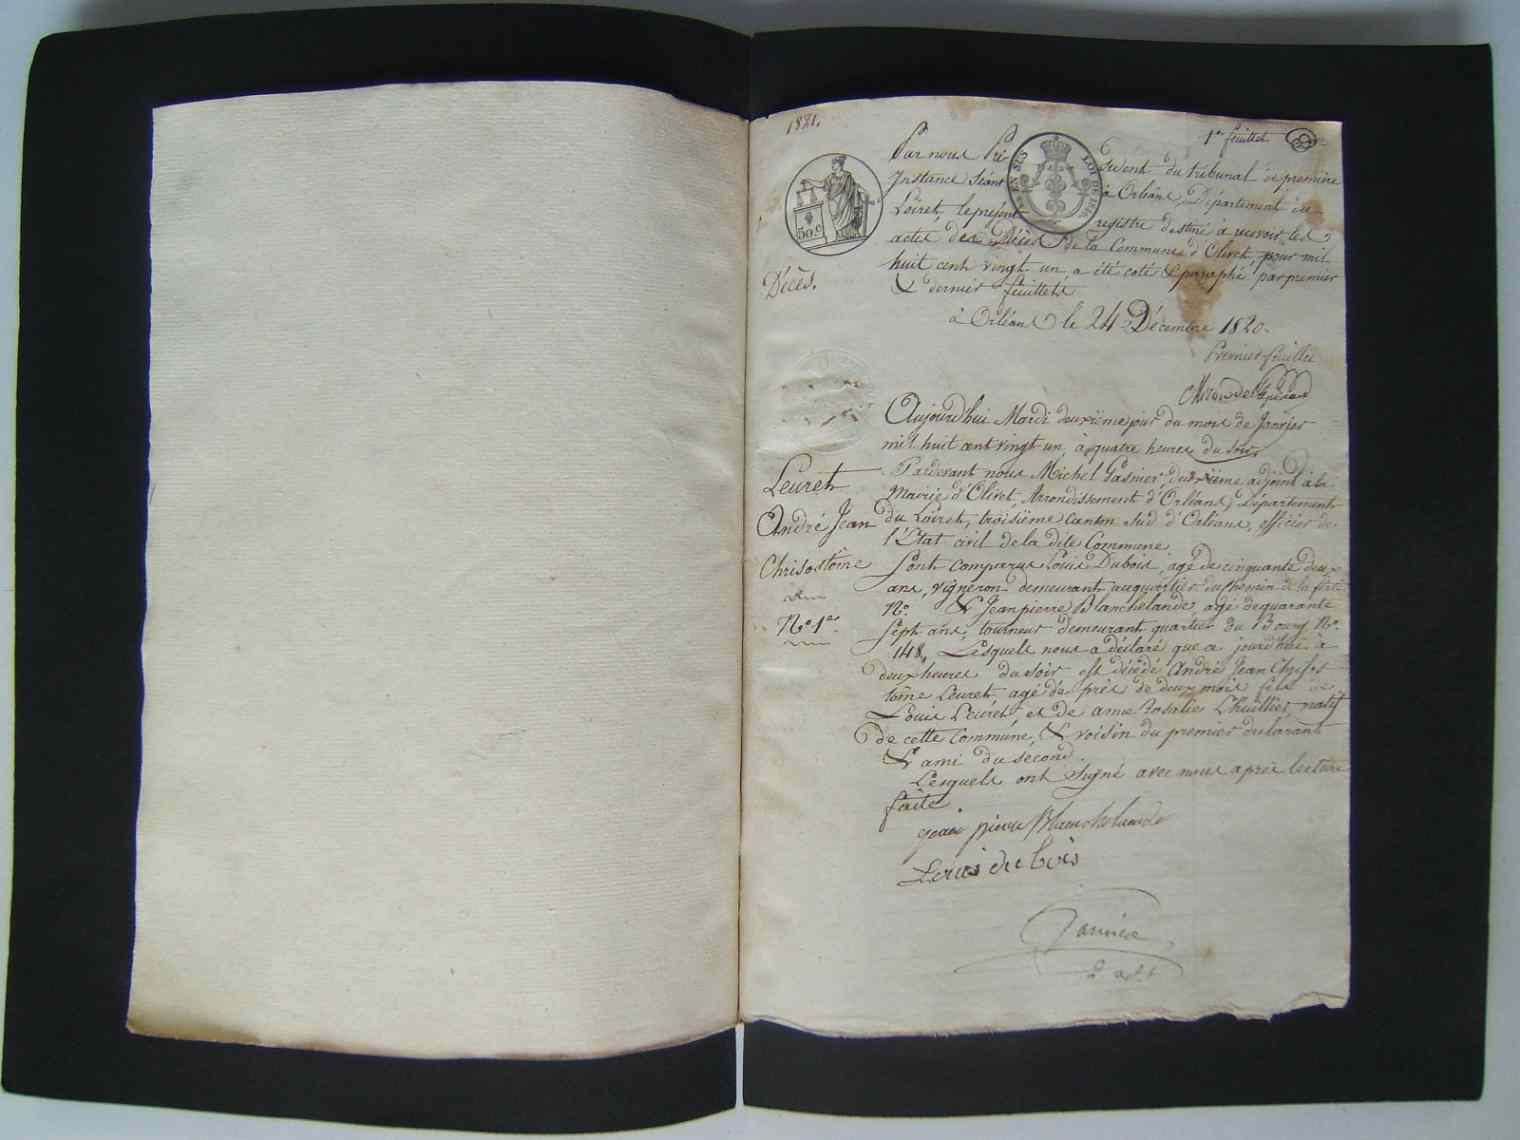 1821.
1er feuillet
Par nous Pré sident du tribunal de premiere
Instance séant à Orléans, Département du
Loiret, le présent registre destiné à recevoir les
actes des Décès de la Commune d'Olivet, pour mil
huit cent vingt un, a été coté & paraphé par premier
& dernier feuillets
à Orléans le 24 Décembre 1820.
Premier feuillet
EN SUS
LOI DE 1816
50.c
Décès.
Aujourd'hui Mardi deuxième jour du mois de Janvier
mil huit cent vingt un, à quatre heures du soir,
Pardevant nous Michel Gasnier, deuxième adjoint à la
Mairie d'Olivet, Arrondissement d'Orléans, Département
du Loiret, troisième Canton Sud d'Orléans, officier de
l'Etat civil de la dite Commune
Sont comparus Louis Dubois, agé de cinquante deux
ans, vigneron demeurant au quartier du chemin de la ferté
No. & Jean pierre Blanchelande, agé de quarante
sept ans, tourneur demeurant quartier du Bourg No.
148, Lesquels nous a déclaré que ce jourd'hui à
deux heures du soir est décédé André Jean Chrisos
tôme Leuret, agé de près de deux mois fils de
Louis Leuret et de anne Rosalie Lhuillier, natif
de cette Commune, & voisin du premier déclarant
& ami du second.
Lesquels ont signé avec nous après lecture
faite.
Leuret
André Jean
Chrisostôme
No. 1er.
jean pierre Blanchelande
Louis du bois